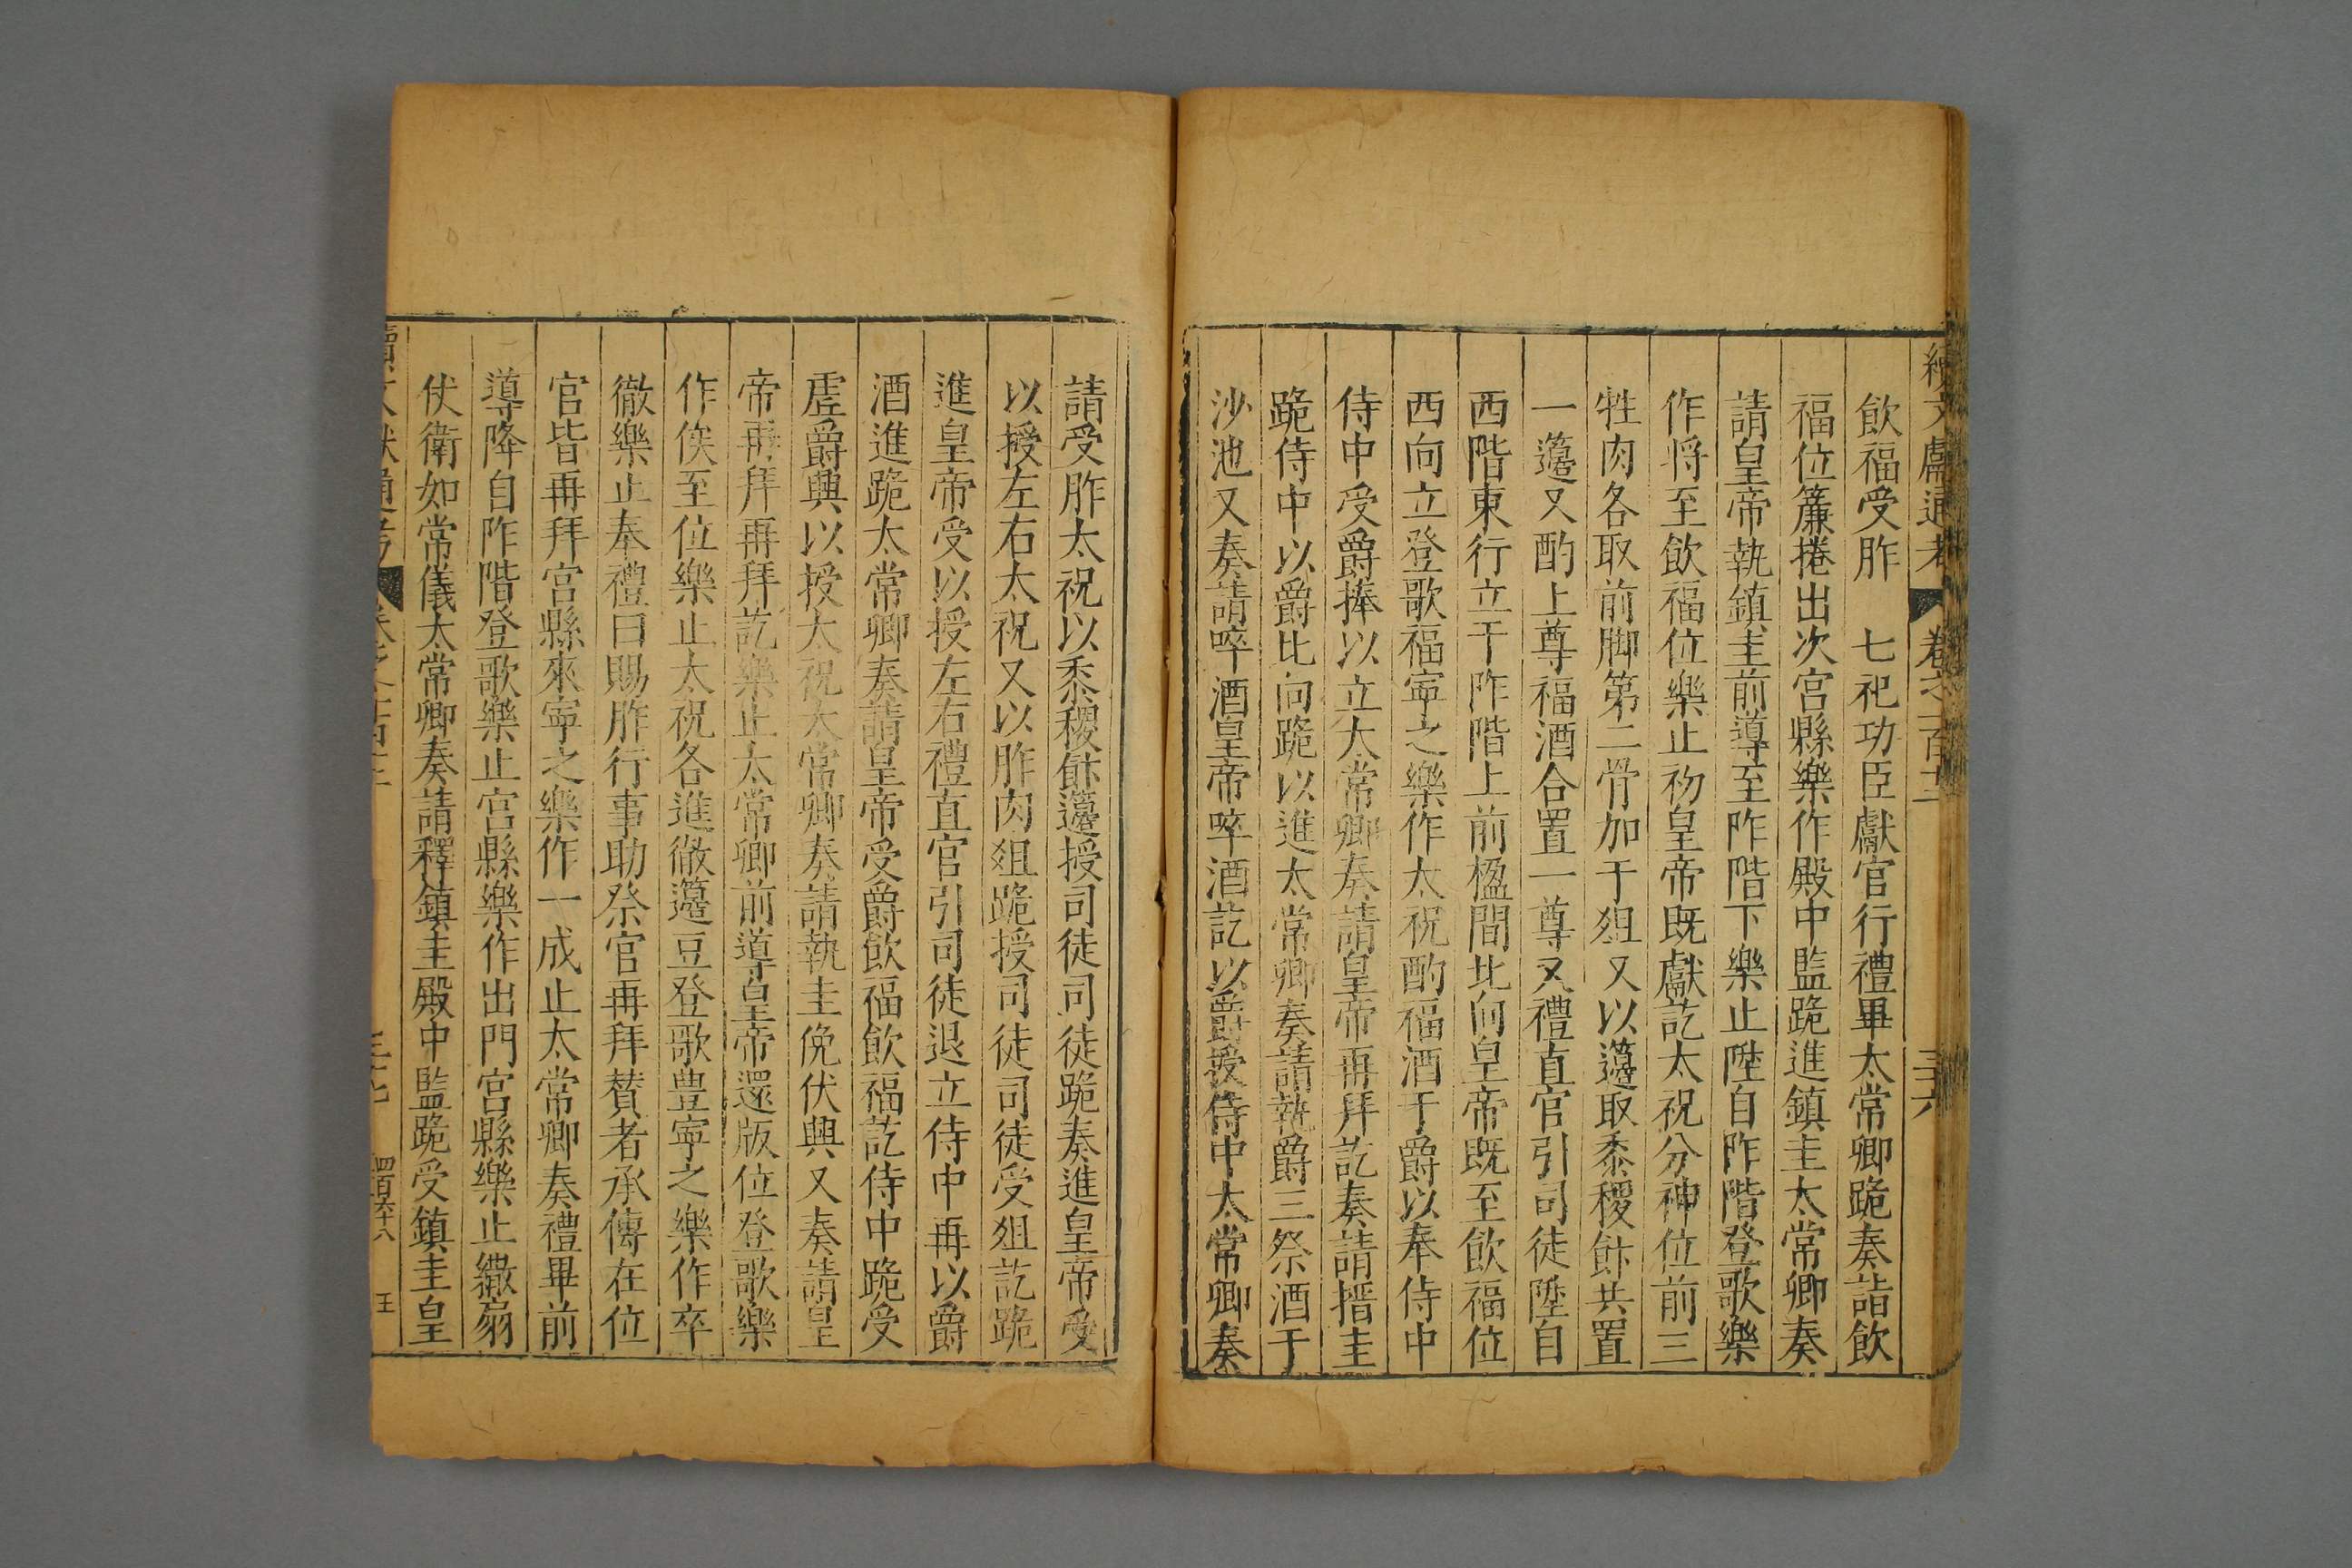 飲福受胙　七祀功臣獻官行禮畢太常卿跪奏詣飲
福位簾捲出次宮縣樂作殿中監跪進鎮圭太常卿奏
請皇帝執鎮圭前導至阼階下樂止陞自阼階登歌樂
作将至飲福位樂止初皇帝既獻訖太祝分神位前三
牲肉各取前脚第二骨加于俎又以籩取黍稷餅共置
一籩又酌上尊福酒合置一尊又禮直官引司徒陞自
西階東行立于阼階上前楹間北向皇帝既至飲福位
西向立登歌福寜之樂作太祝酌福酒于爵以奉侍中
侍中受爵捧以立太常卿奏請皇帝再拜訖奏請搢圭
跪侍中以爵北向跪以進太常卿奏請執爵三祭酒于
沙池又奏請啐酒皇帝啐酒訖以爵授侍中太常卿奏
請受胙太祝以黍稷餅籩授司徒司徒跪奏進皇帝受
以授左右太祝又以胙肉俎跪授司徒司徒受俎訖跪
進皇帝受以授左右禮直官引司徒退立侍中再以爵
酒進跪太常卿奏請皇帝受爵飲福飲福訖侍中跪受
虗爵興以授太祝太常卿奏請執圭俛伏興又奏請皇
帝再拜再拜訖樂止太常卿前導皇帝還版位登歌樂
作俟至位樂止太祝各進徹籩豆登歌豊寜之樂作卒
徹樂止奉禮曰賜胙行事助祭官再拜賛者承傳在位
官皆再拜宮縣來寜之樂作一成止太常卿奏禮畢前
導降自阼階登歌樂止宮縣樂作出門宮縣樂止繖扇
仗衛如常儀太常卿奏請釋鎮圭殿中監跪受鎮圭皇